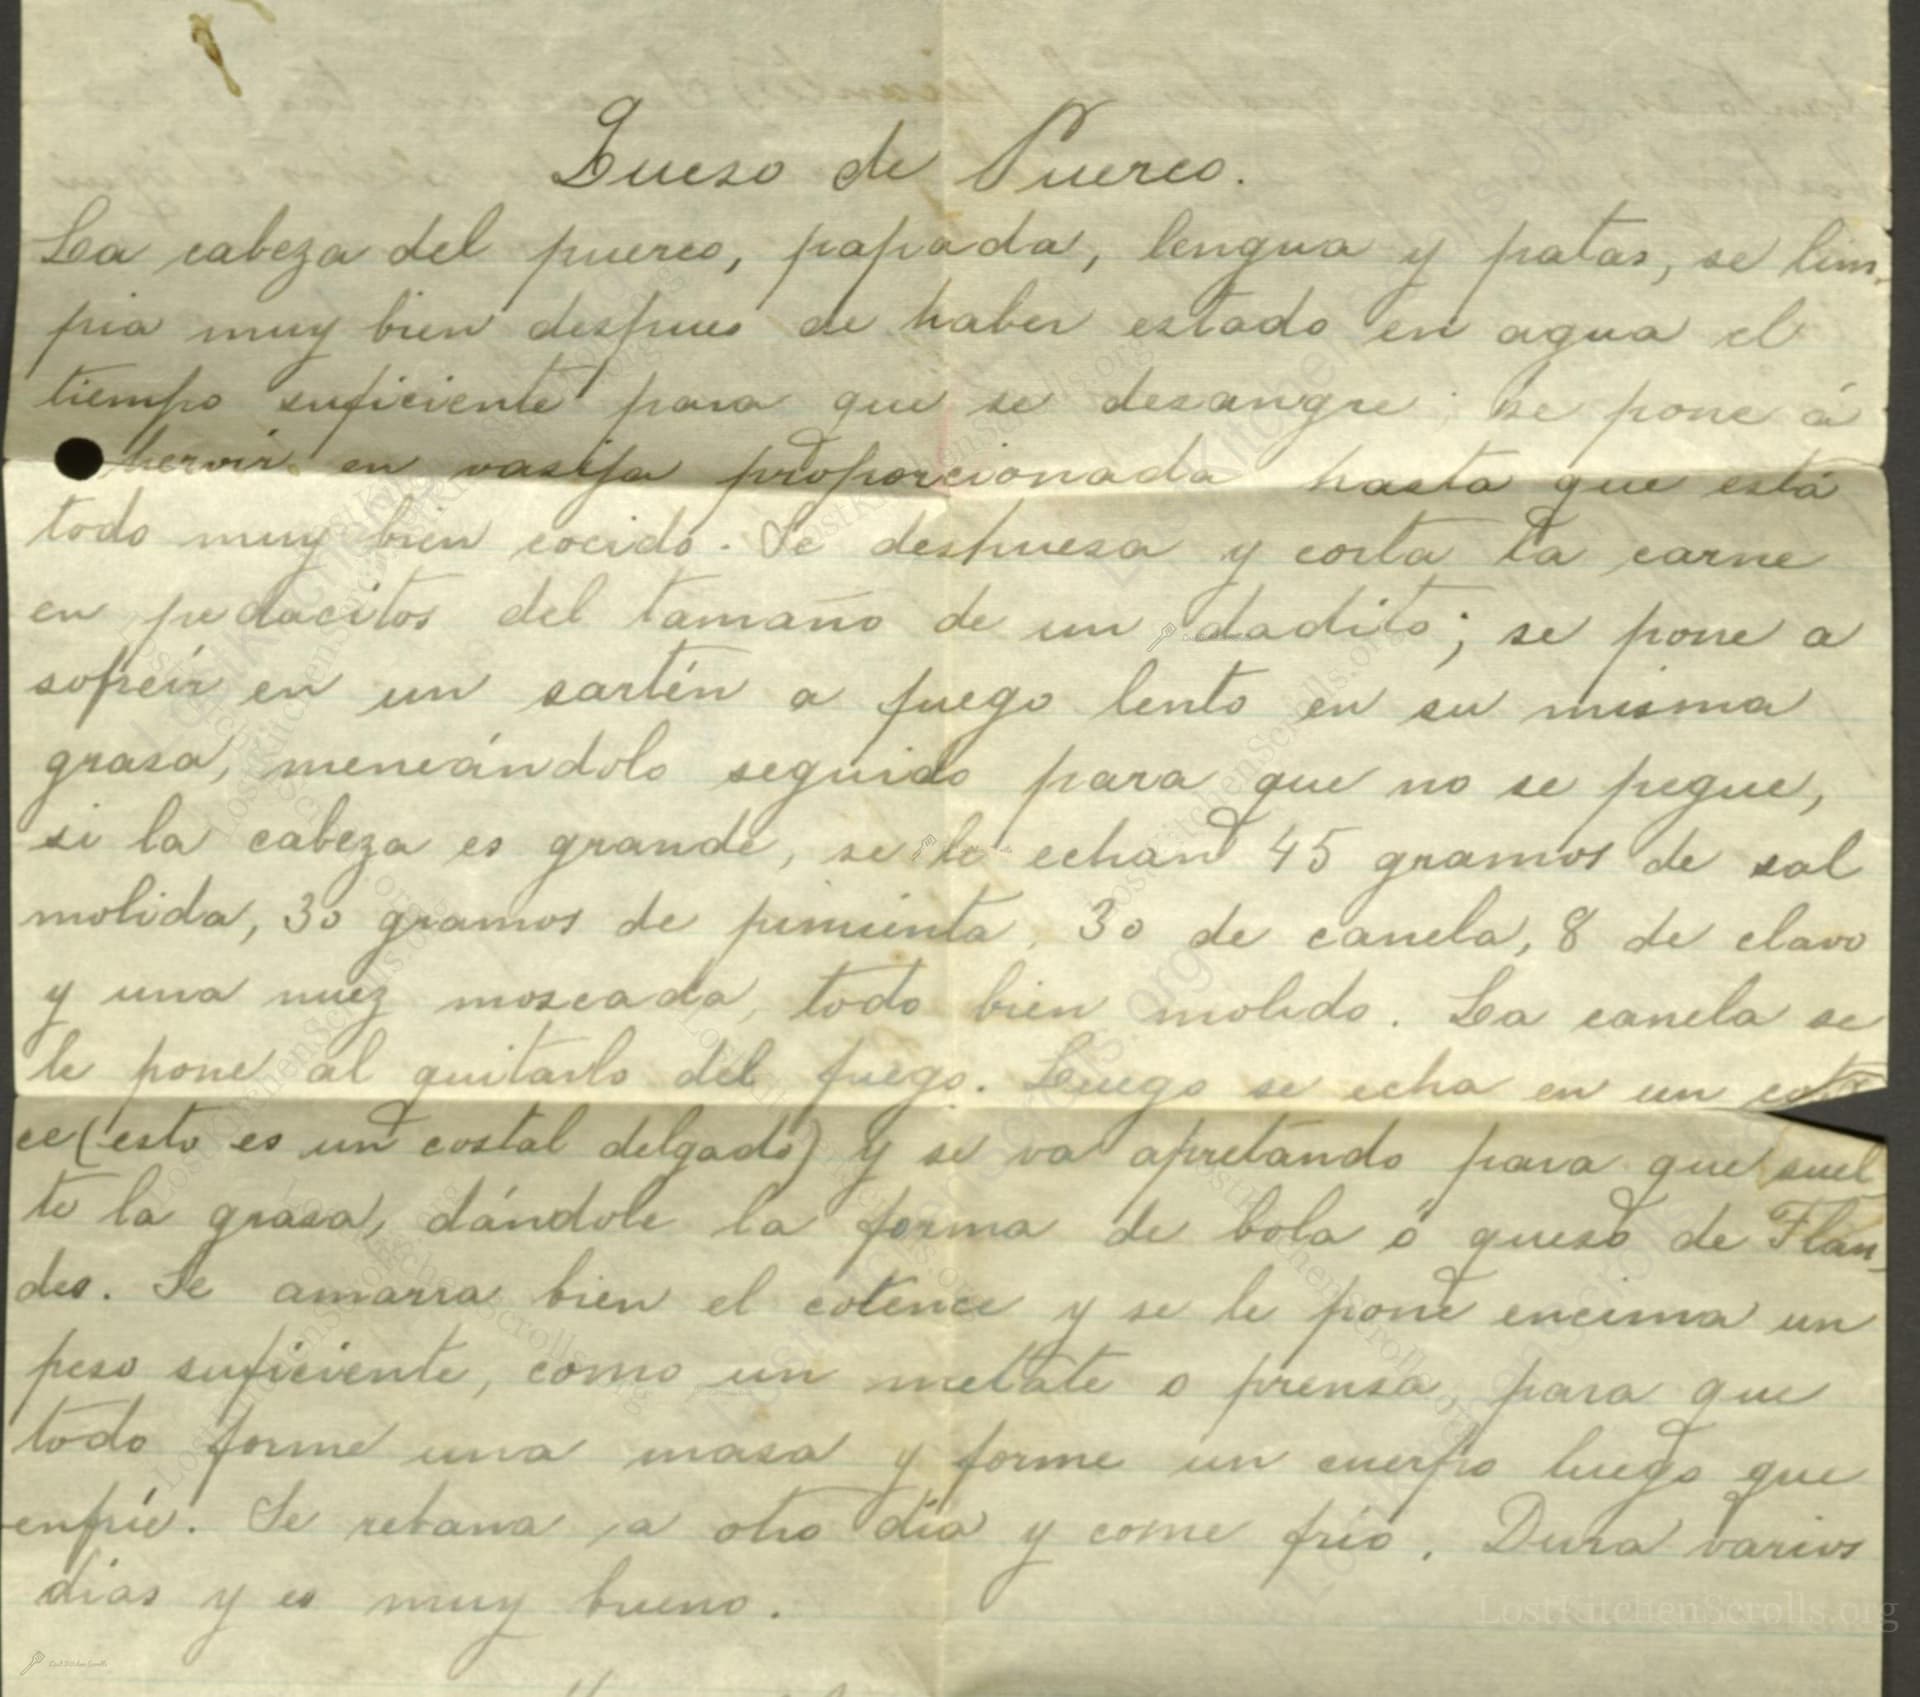 Queso de Puerco.
La cabeza del puerco, papada, lengua y patas, se lim-
pia muy bien despues de haber estado en agua el
tiempo suficiente para que se desangre; se pone á
hervir en vasija proporcionada hasta que está
todo muy bien cocido. Se deshuesa y corta la carne
en pedacitos del tamaño de un dadito; se pone a
sofreír en un sartén a fuego lento en su misma
grasa, meneándolo seguido para que no se pegue,
si la cabeza es grande, se le echan 45 gramos de sal
molida, 30 gramos de pimienta, 30 de canela, 8 de clavo
y una nuez moscada, todo bien molido. La canela se
le pone al quitarlo del fuego. Luego se echa en un coten
ce (esto es un costal delgado) y se va apretando para que suel
te la grasa, dándole la forma de bola ó queso de Flan-
des. Se amarra bien el cotence y se le pone encima un
peso suficiente, como un metate o prensa, para que
todo forme una masa y forme un cuerpo luego que
enfríe. Se rebana a otro día y come frío. Dura varios
dias y es muy bueno.
LostKitchenScrolls.org